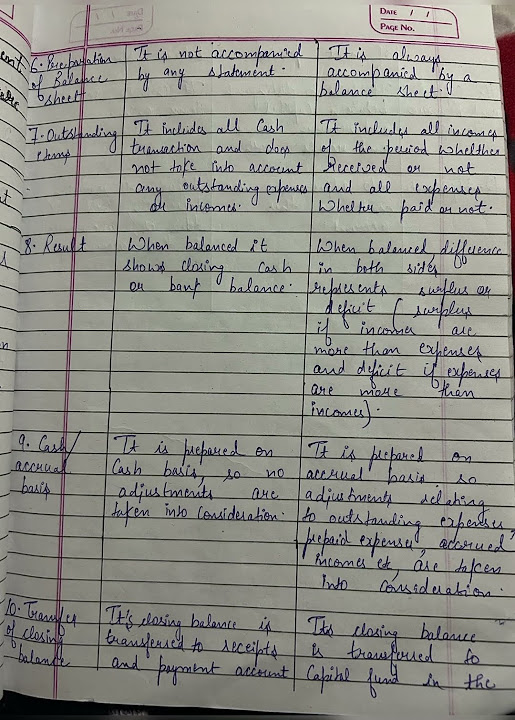 DATE / /
PAGE No.
6. Preparation of Balance sheet
It is not accompanied
by any statement.
It is always
accompanied by a
balance sheet.
7. Outstanding
items
It includes all Cash
transaction and does
not take into account
any outstanding expenses
or incomes.
It includes all incomes
of the period whether
received or not
and all expenses
whether paid or not.
8. Result
When balanced it
shows closing cash
or bank balance.
When balanced difference
in both sides
represents surplus or
deficit (surplus
if incomes are
more than expenses
and deficit if expenses
are more than
incomes).
9. Cash/
accrual
basis
It is prepared on
Cash basis, so no
adjustments are
taken into consideration.
It is prepared on
accrual basis so
adjustments relating
to outstanding expenses,
prepaid expenses, accrued
incomes etc, are taken
into consideration.
10. Transfer
of closing
balance
It's closing balance is
transferred to receipts
and payment account
Its closing balance
is transferred to
Capital fund in the